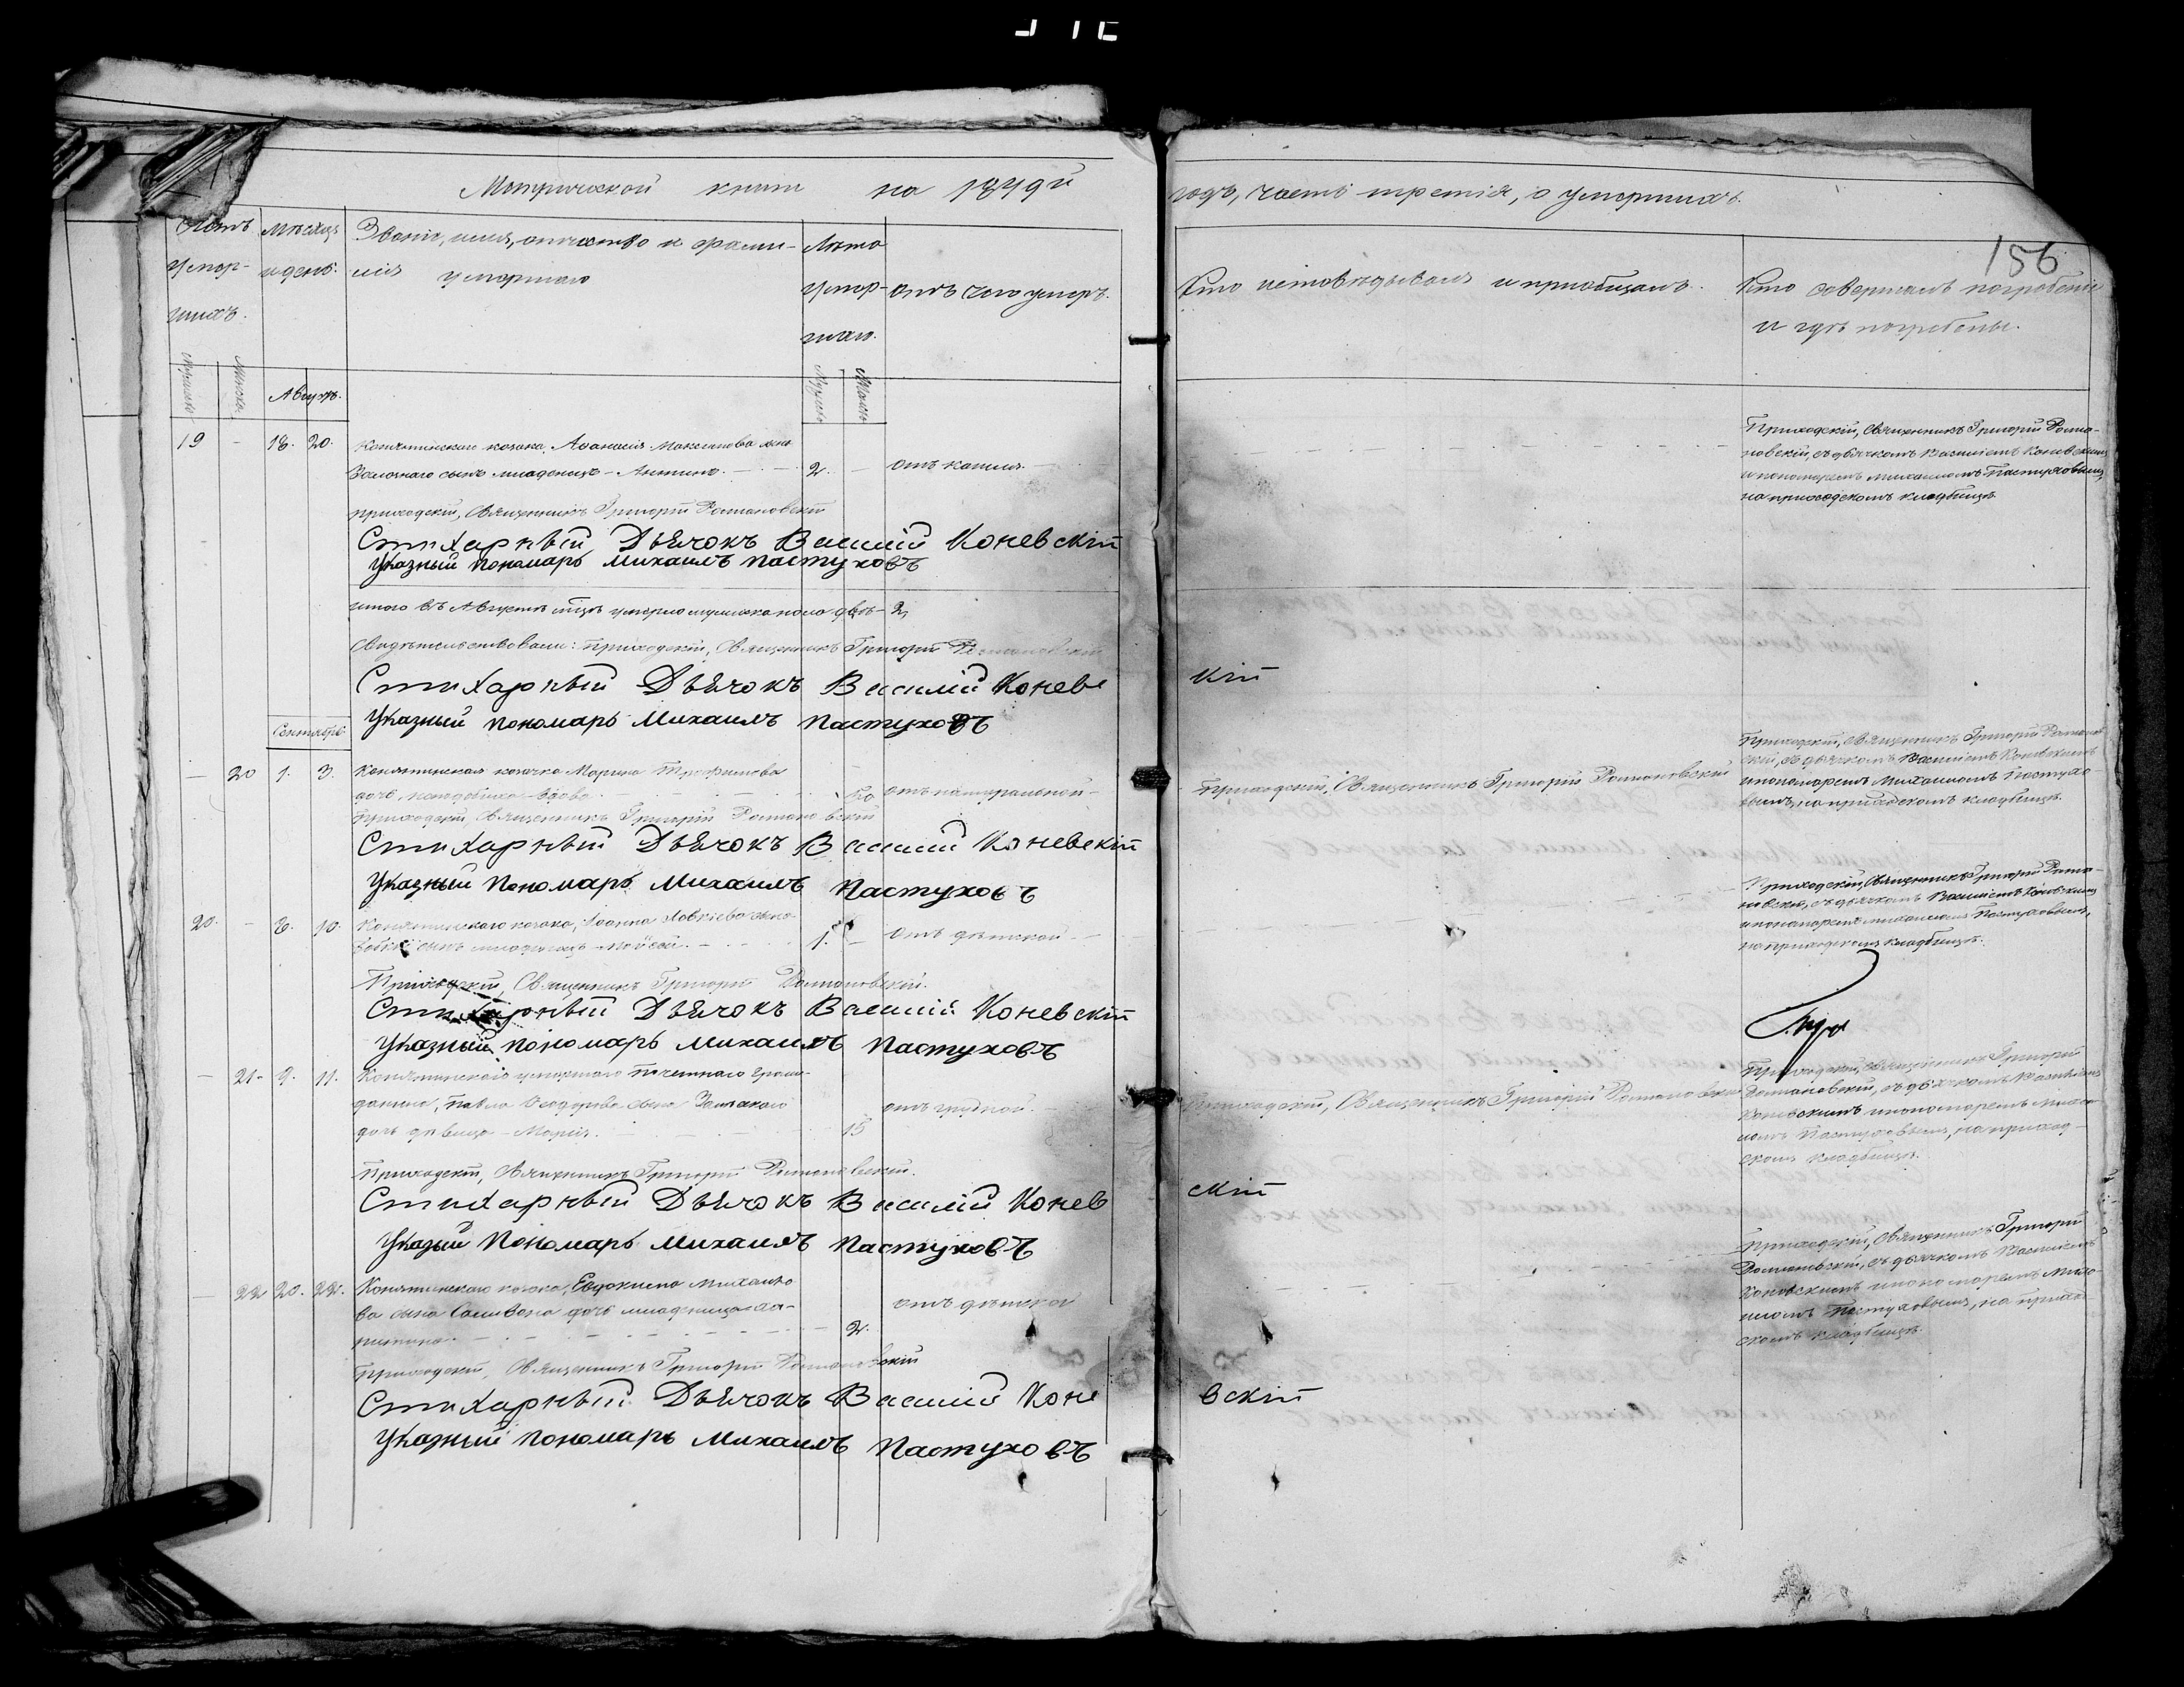 Метрической книги на 1879й
годъ, часть третія, о умершихъ.
156
Счетъ умер-шихъ.
Мѣсяцъ и день.
Званіе, имя, отчество и фами-
лія умершаго
Лѣта умер-шаго.
Отъ чего умеръ.
Кто исповѣдывалъ и пріобщалъ.
Кто совершалъ погребеніе
и гдѣ погребены.
Мужеска
Женска
Августъ.
Мужеска
Женска
19 - 18. 20. Конятинскаго козака, Аѳанасія Максимова сына
сынъ младенецъ - 2. - отъ кашля.
Приходскій, Священникъ Григорій Романовскій
Стихарный Дьячокъ Василій Коневскій
Указный Пономарь Михаилъ Пастуховъ
Приходскій, Священникъ Григорій Рома-
новскій, съ дьячкомъ Василіемъ Коневскимъ
и пономаремъ Михаиломъ Пастуховымъ,
на приходскомъ кладбищѣ
Итого въ Августѣ мцѣ умерло мужеска пола два - 2,
Свидѣтельствовали: Приходскій, Священникъ Григорій Романовскій
Стихарный Дьячокъ Василій Коневс кій
Указный Пономарь Михаилъ Пастуховъ
Сентябрь
- 20 1. 3. Конятинская козачка Марина Трофимова
дочь, вдова. 50 отъ натуральной -
Приходскій, Священникъ Григорій Романовскій
Приходскій, Священникъ Григорій Романовскій
Стихарный Дьячокъ Василій Коневскій
Указный Пономарь Михаилъ Пастуховъ
Приходскій, Священникъ Григорій Романов
скій, съ дьячкомъ Василіемъ Коневскимъ
и пономаремъ Михаиломъ Пастухо-
вымъ, на приходскомъ кладбищѣ.
20. - 8. 10. Конятинскаго козака, Іоанна сына
сынъ младенецъ - Мойсей. - 1. - Отъ дѣтской -
Приходскій, Священникъ Григорій Романовскій.
Стихарный Дьячокъ Василій Коневскій
Указный Пономарь Михаилъ Пастуховъ
Приходскій, Священникъ Григорій Рома-
новскій, съ дьячкомъ Василіемъ Коневскимъ
и пономаремъ Михаиломъ Пастуховымъ,
на приходскомъ кладбищѣ.
- 21 - 9. 11. Конятинскаго умершаго почетнаго граж-
данина, Павла Ѳеодорова сына
дочь дѣвица - Марія. 15 отъ грудной.
Приходскій, Священникъ Григорій Романовскій
Приходскій, Священникъ Григорій Романовскій.
Стихарный Дьячокъ Василій Конев скій
Указый Пономарь Михаилъ Пастуховъ
Приходскій, Священникъ Григорій
Романовскій, съ дьячкомъ Василіемъ
Коневскимъ и пономаремъ Михаи-
ломъ Пастуховымъ, на приход-
скомъ кладбищѣ.
- 22 20. 22. Конятинскаго козака, Евдокима Михайло
ва сына дочь младеница Ха-
ритина. - 2. отъ дѣтской
Приходскій, Священникъ Григорій Романовскій
Стихарный Дьячокъ Василій Коне вскій
Указный Пономарь Михаилъ Пастуховъ
Приходскій, Священникъ Григорій
Романовскій, съ дьячкомъ Василіемъ
Коневскимъ и пономаремъ Михаи-
ломъ Пастуховымъ, на приход
скомъ кладбищѣ.